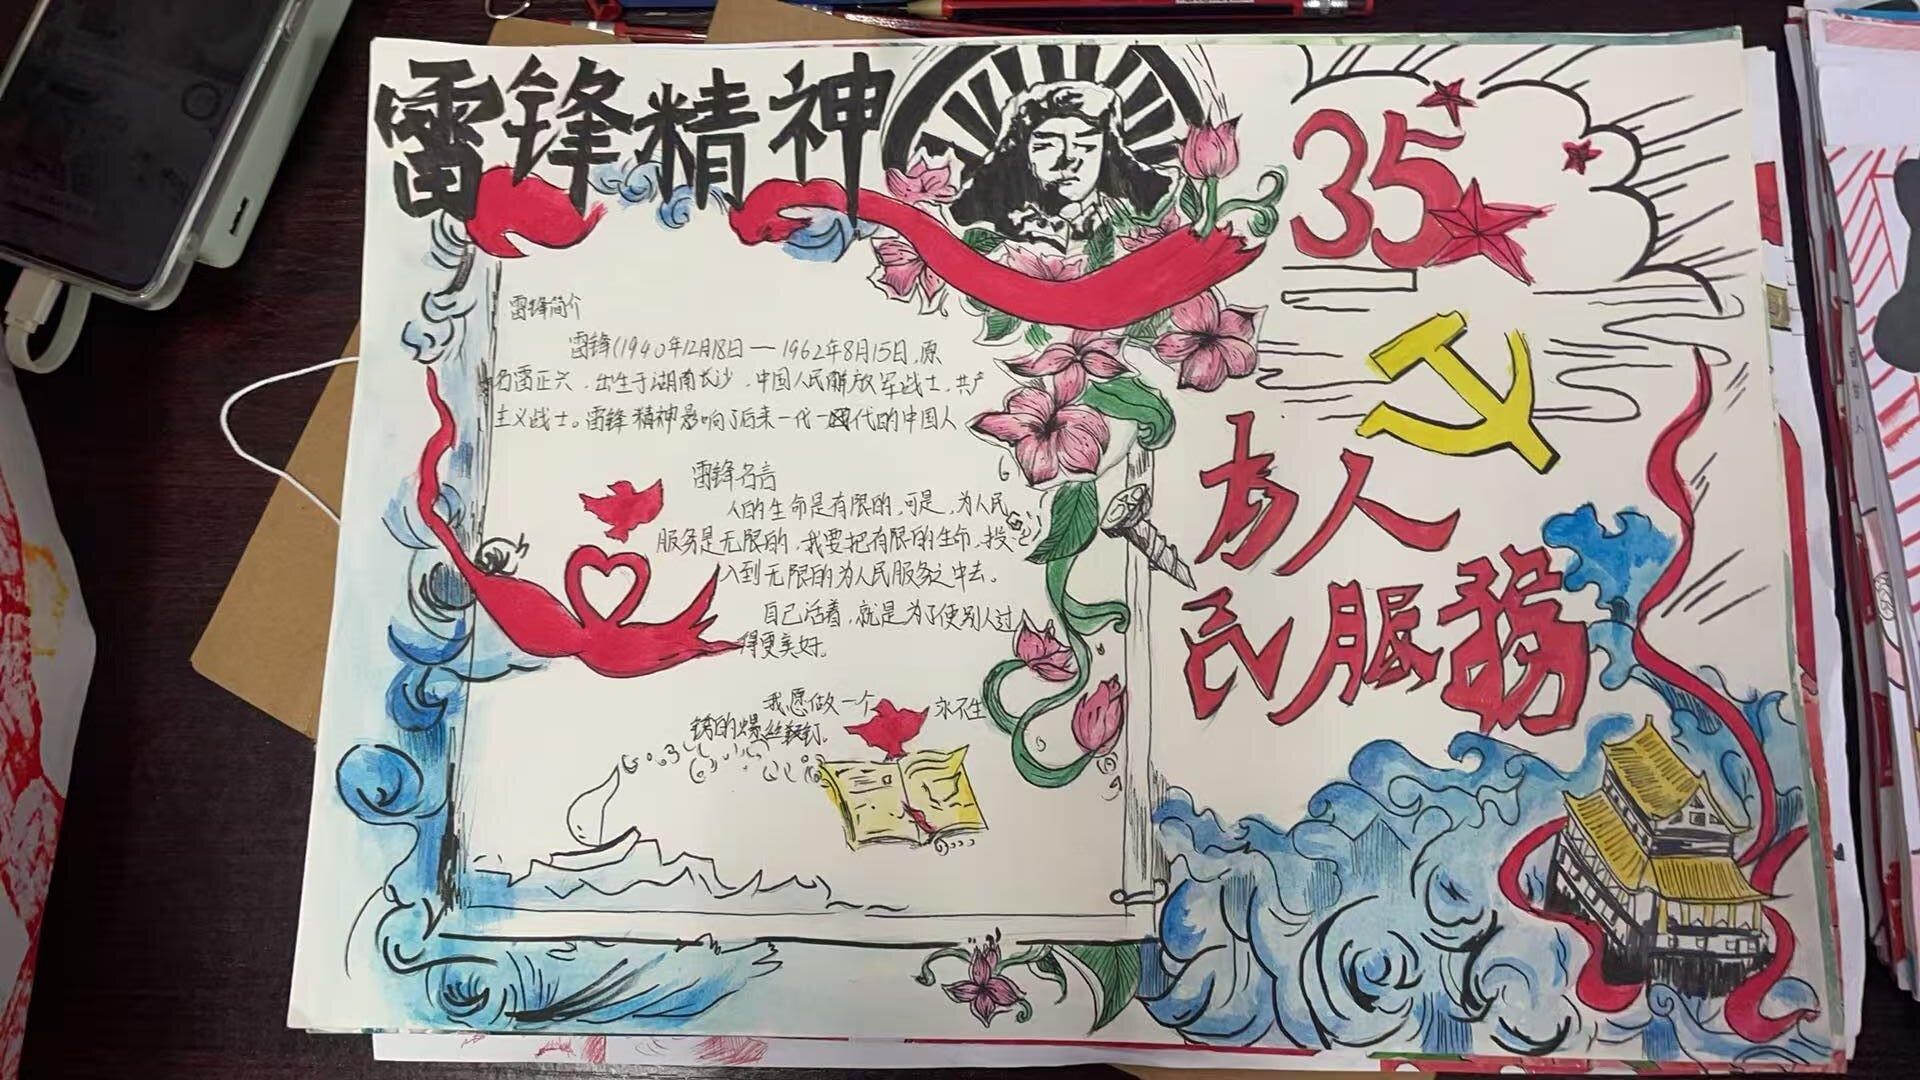 雷锋精神
35
雷锋简介
雷锋(1940年12月18日—1962年8月15日,原
名雷正兴,出生于湖南长沙,中国人民解放军战士,共产
主义战士。雷锋精神影响了后来一代一代的中国人
雷锋名言
人的生命是有限的,可是,为人民
服务是无限的,我要把有限的生命,投
入到无限的为人民服务之中去。
自己活着,就是为了使别人过
得更美好。
我愿做一个永不生
锈的螺丝钉。
为人
民服務